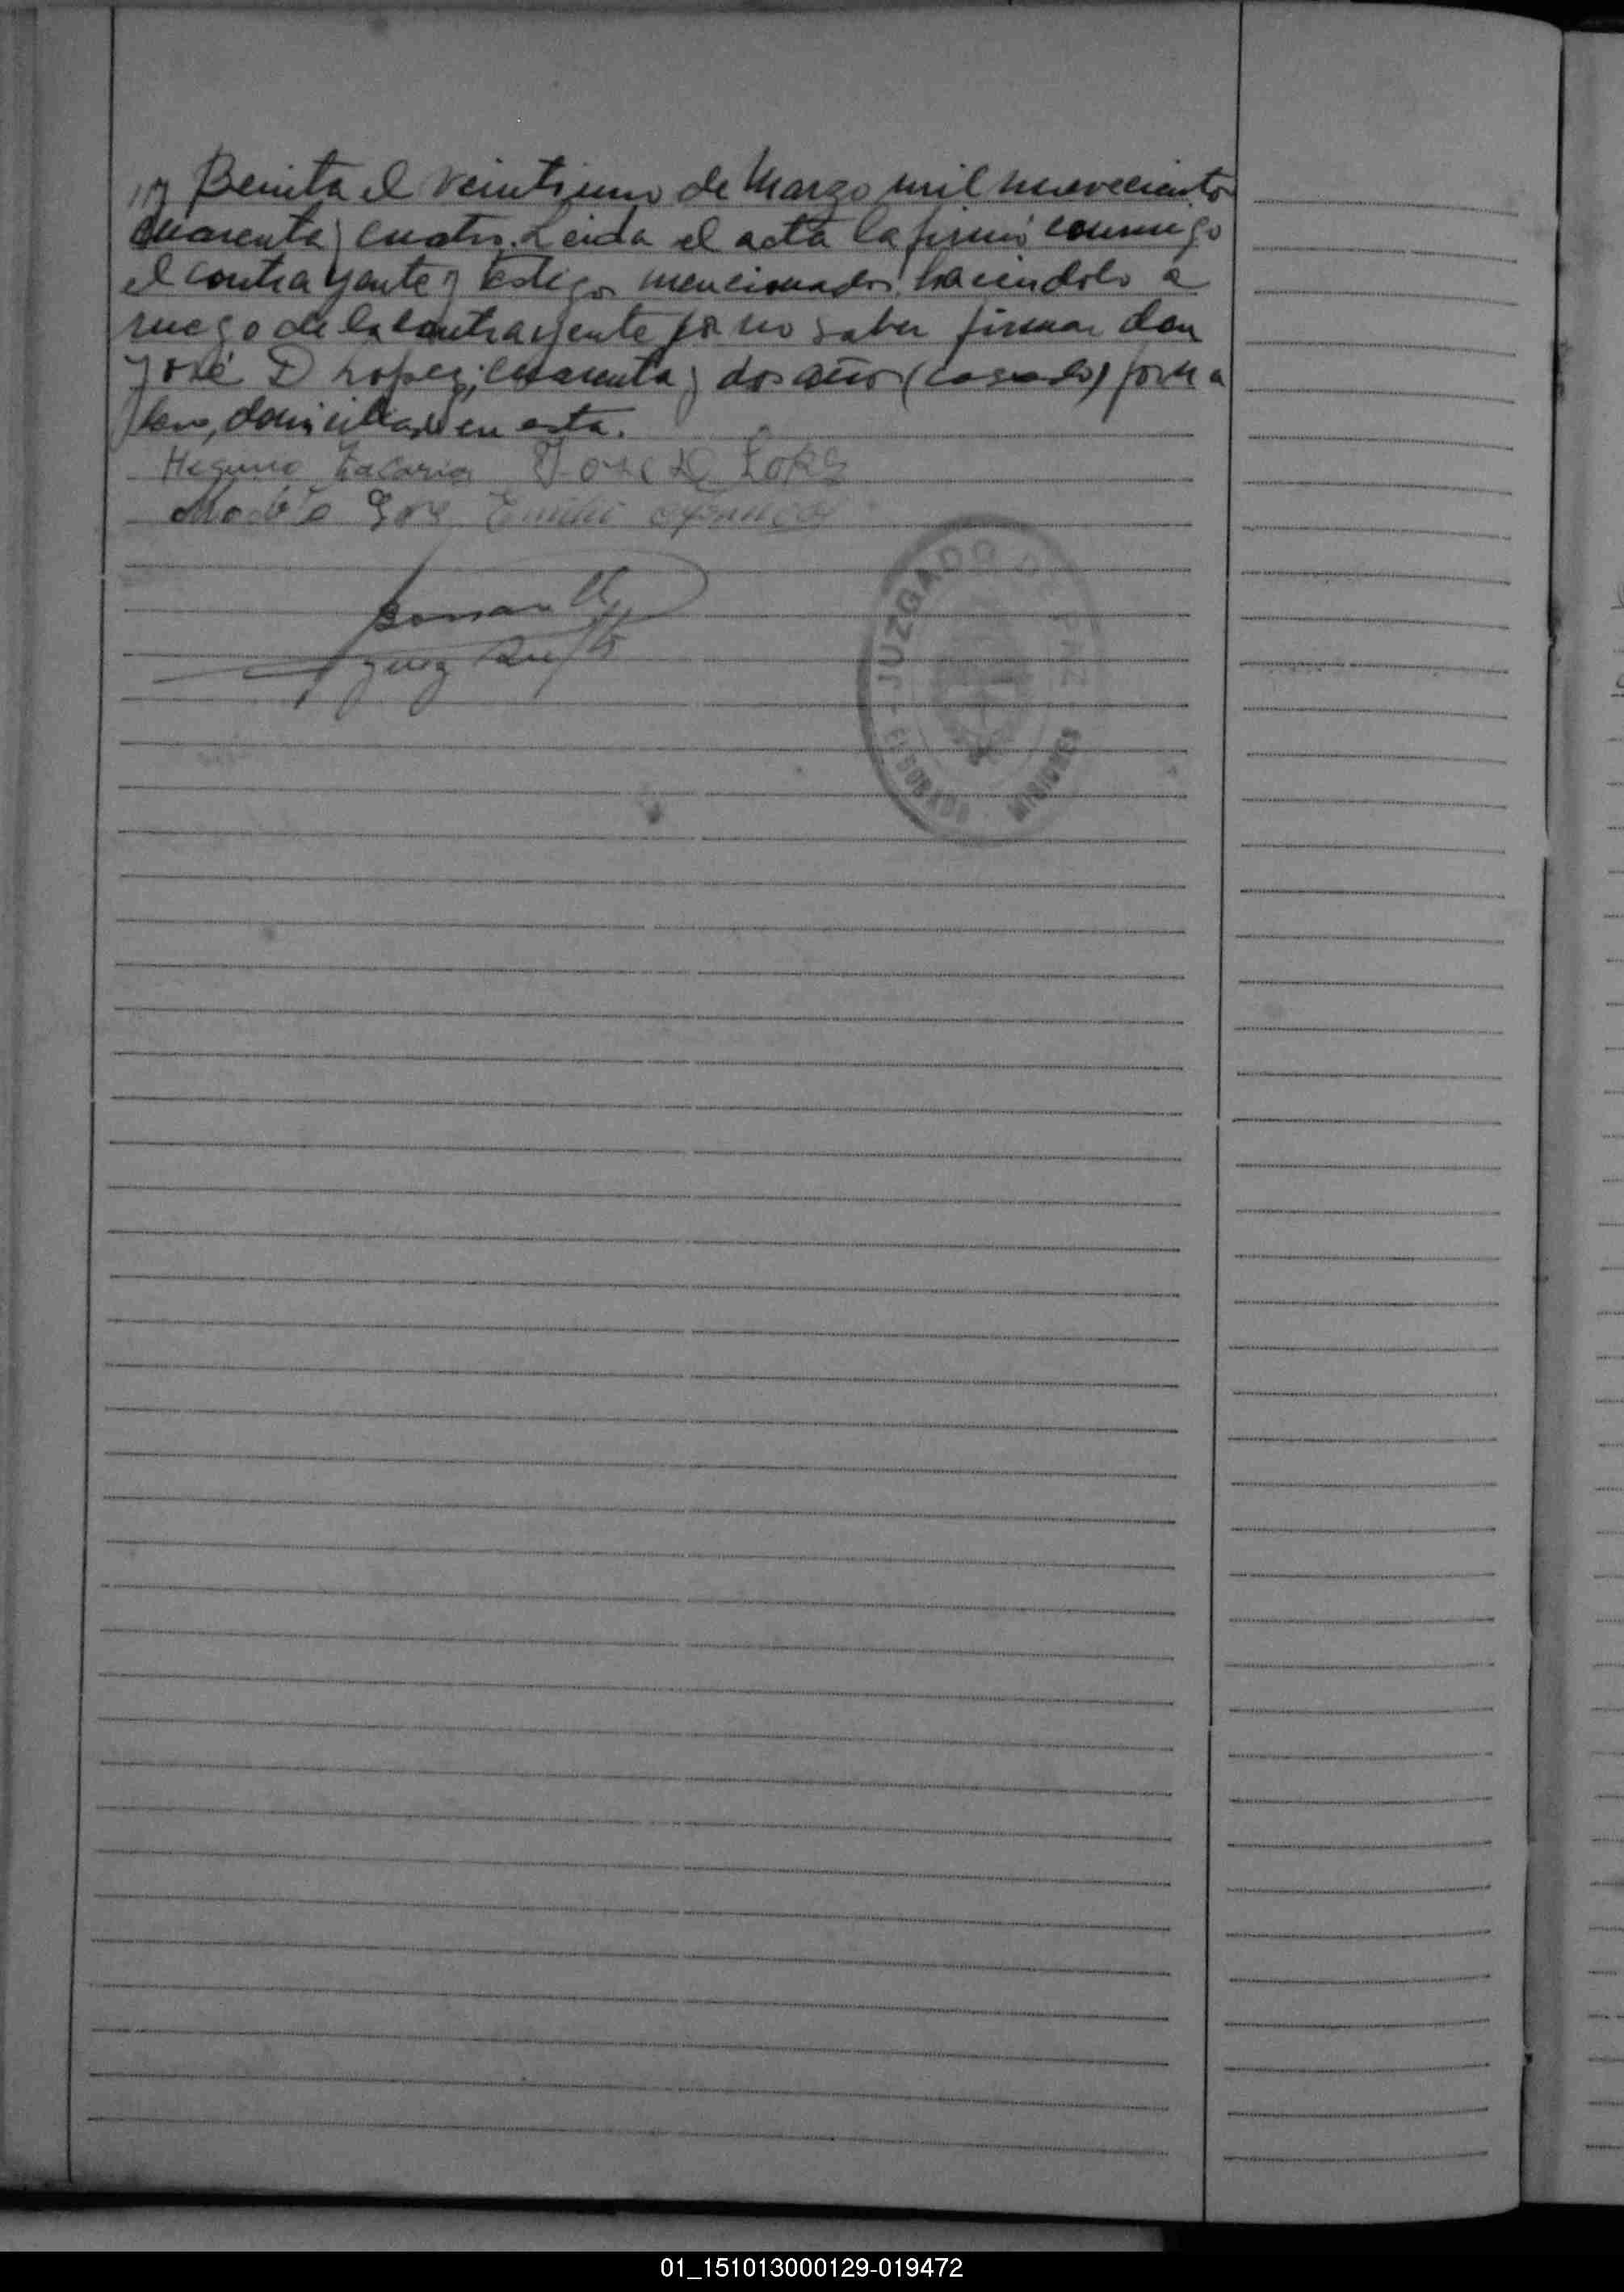 y Benita el veintiuno de Marzo mil novecientos
cuarenta y cuatro. Leida el acta la firmó conmigo
el contrayente y testigos mencionados, haciendolo a
ruego de la contrayente por no saber firmar don
José D Lopez, cuarenta y dos años (casado) jorna
lero, domiciliado en esta.
Higinio Zacaria José D Lopez
Emilio
Juez Supl
JUZGADO DE PAZ
ELDORADO - MISIONES
01_151013000129-019472